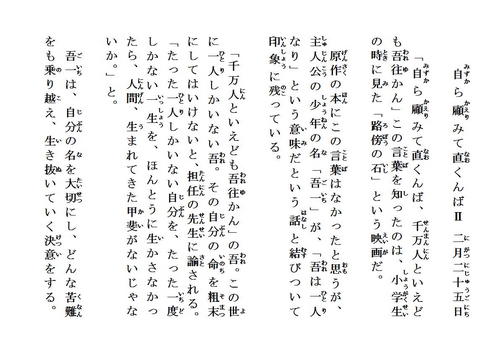 自ら顧みて直くんばⅡ 二月二十五日
「自ら顧みて直くんば、千万人といえど
も吾往かん」この言葉を知ったのは、小学生
の時に見た「路傍の石」という映画だ。
原作の本にこの言葉はなかったと思うが、
主人公の少年の名「吾一」が、「吾は一人
なり」という意味だという話と結びついて
印象に残っている。
「千万人といえども吾往かん」の吾。この世
に一人しかいない吾。その自分の命を粗末
にしてはいけないと、担任の先生に諭される。
「たった一人しかいない自分を、たった一度
しかない一生を、ほんとうに生かさなかっ
たら、人間、生まれてきた甲斐がないじゃな
いか。」と。
吾一は、自分の名を大切にし、どんな苦難
をも乗り越え、生き抜いていく決意をする。